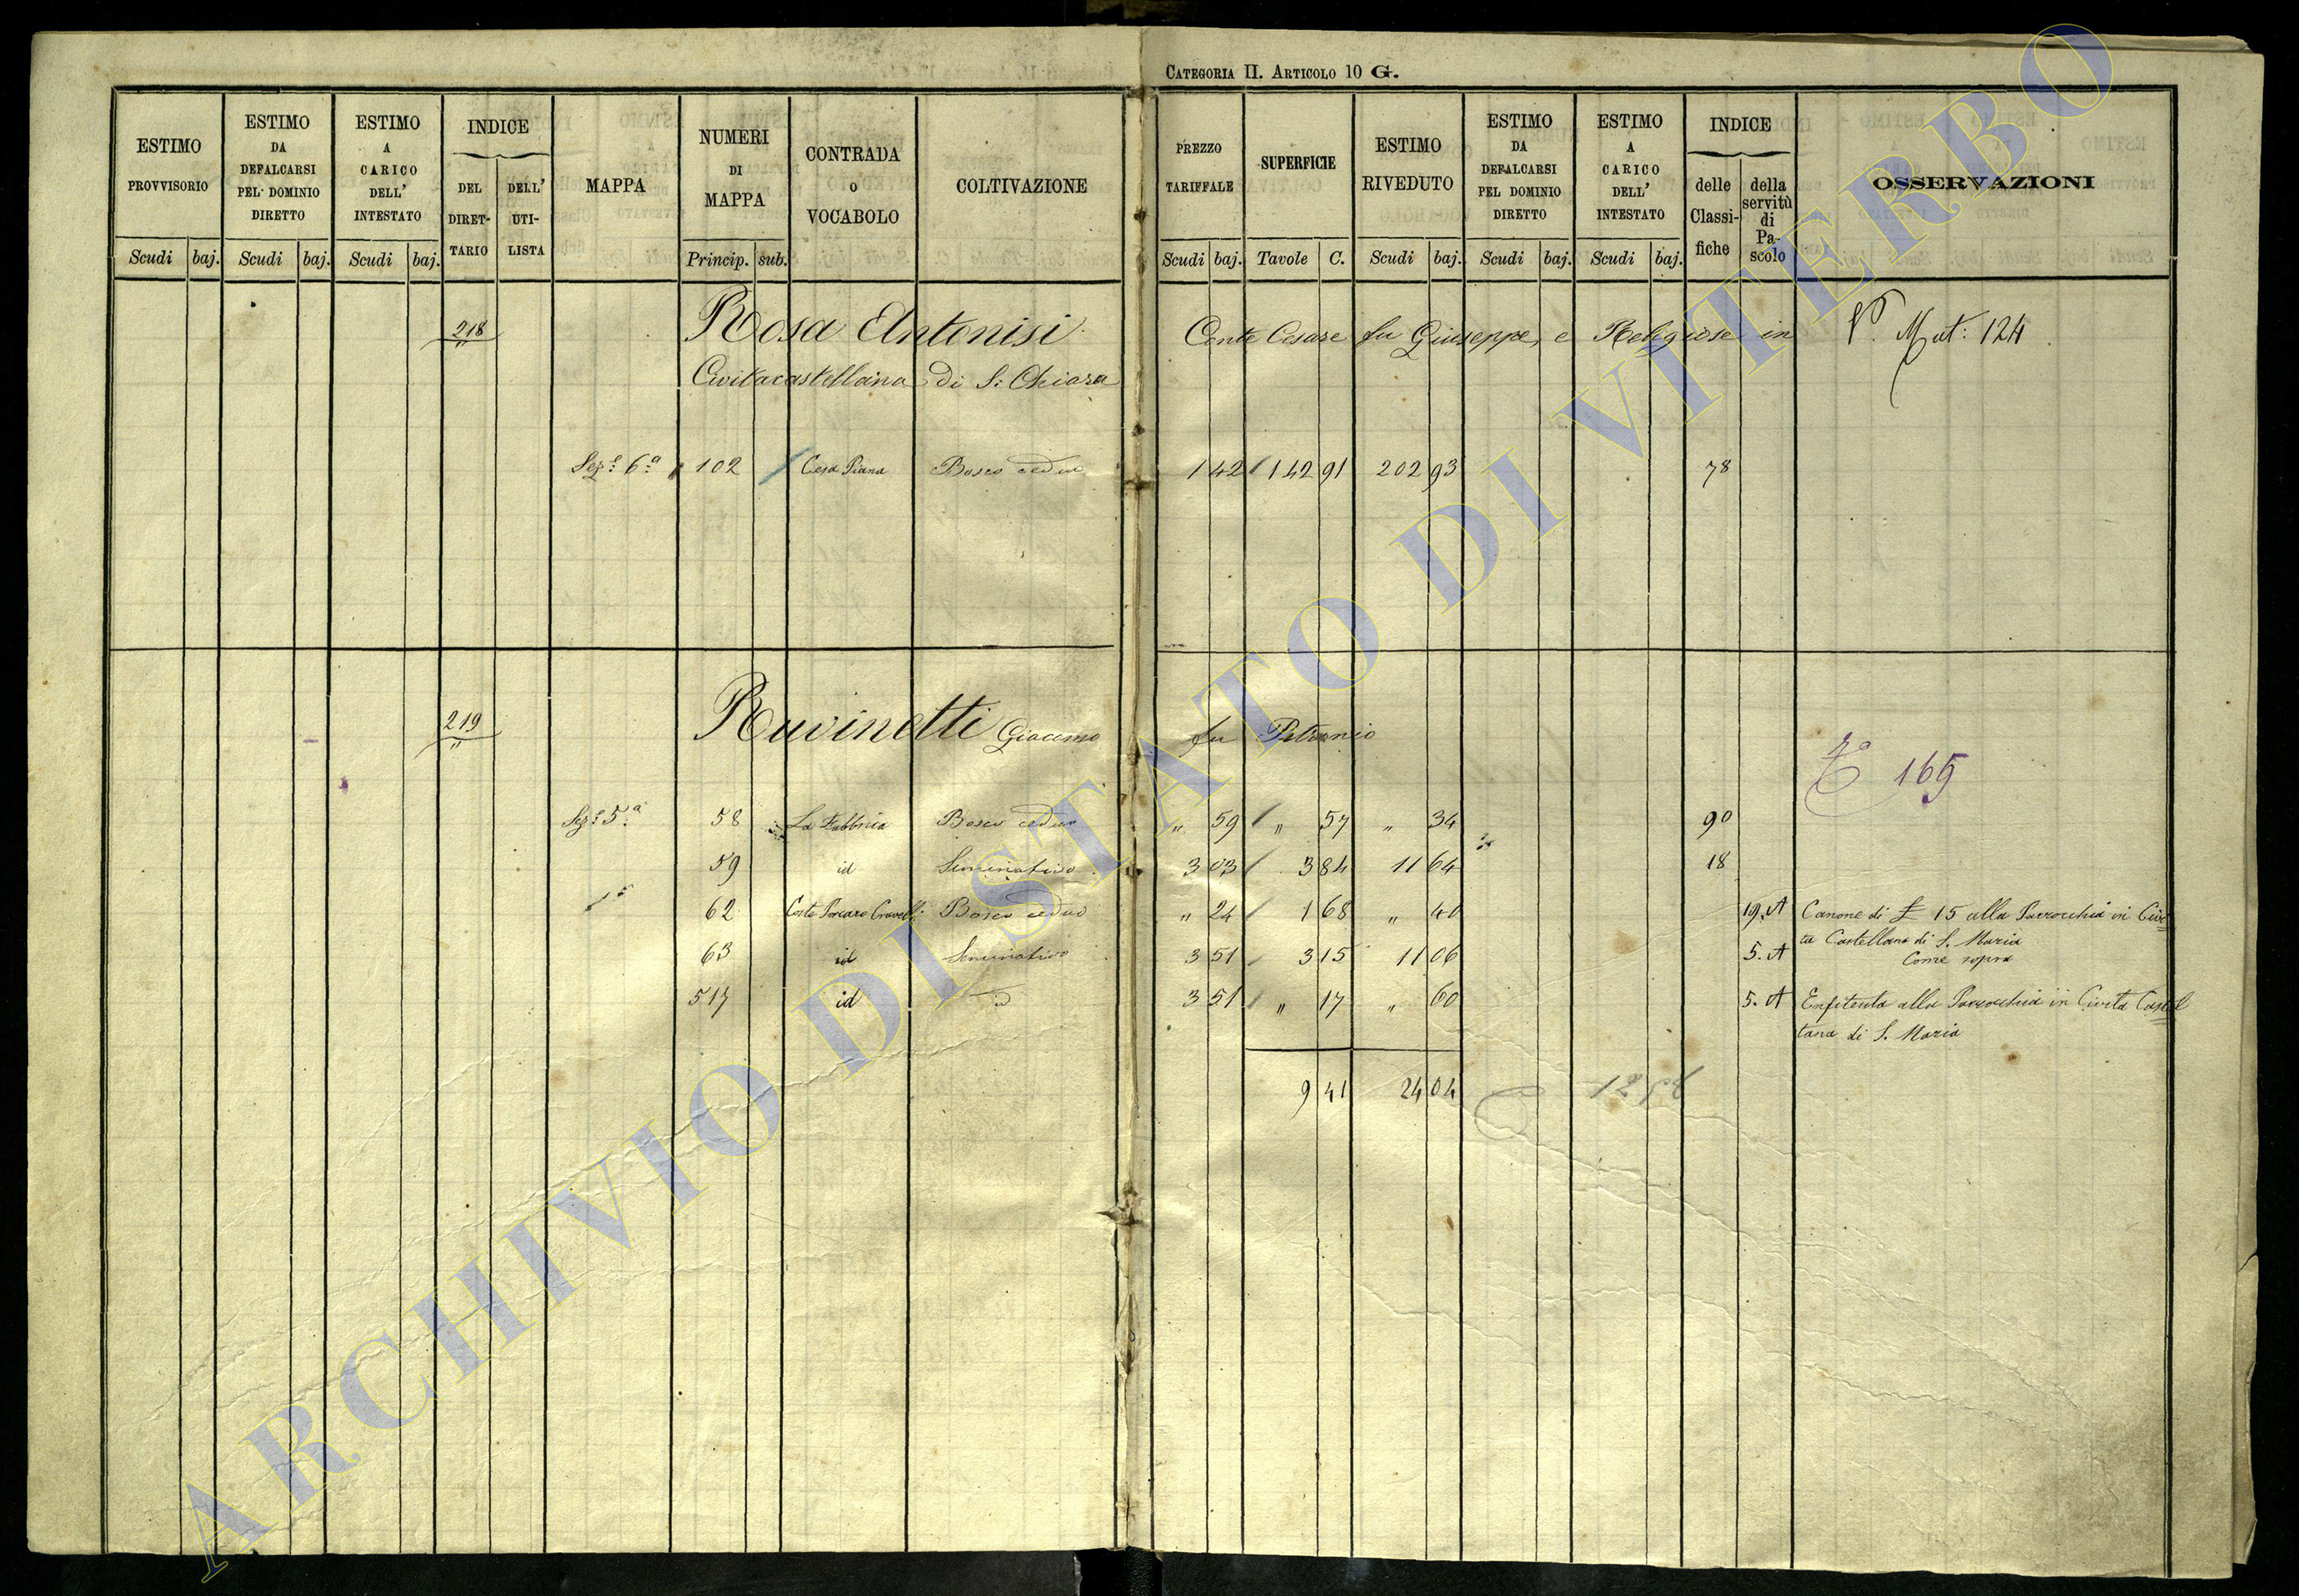 CATEGORIA II. ARTICOLO 10 G.
ESTIMO PROVVISORIO Scudi baj.
ESTIMO DA DEFALCARSI PEL DOMINIO DIRETTO Scudi baj.
ESTIMO A CARICO DELL' INTESTATO Scudi baj.
INDICE DEL DIRET-TARIO DELL' UTI-LISTA
MAPPA
NUMERI DI MAPPA Princip. sub.
CONTRADA O VOCABOLO
COLTIVAZIONE
PREZZO TARIFFALE Scudi baj.
SUPERFICIE Tavole C.
ESTIMO RIVEDUTO Scudi baj.
ESTIMO DA DEFALCARSI PEL DOMINIO DIRETTO Scudi baj.
ESTIMO A CARICO DELL' INTESTATO Scudi baj.
INDICE delle Classi-fiche della servitù di Pa-scolo
OSSERVAZIONI
218 Rosa Antonisi Conte Cesare fu Giuseppe, e Religiose in V. Mut: 124
Civitacastellana di S: Chiara
Sez.e 6.a 102 Cesa Piana Bosco ceduo 1 42 142 91 202 93 78
219 Ruvinetti Giacomo fu Petronio
165
Sez.e 5.a 58 La Fabbrica Bosco ceduo " 59 " 57 " 34 90
59 id Seminativo 3 03 3 84 11 64 18
62 Coste Bosco ceduo " 24 1 68 " 40 19. A Canone di £ 15 alla Parrocchia in Civi=
ta Castellana di S. Maria
63 id Seminativo 3 51 3 15 11 06 5. A Come sopra
517 id id 3 51 " 17 " 60 5. A Enfiteuta alla Parrocchia in Civita Castel=
lana di S. Maria
9 41 24 04
ARCHIVIO DI STATO DI VITERBO